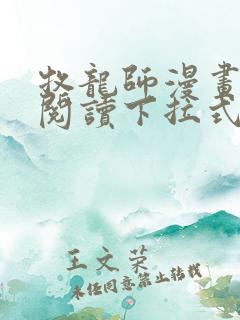 牧龍師漫畫
閱讀下拉式
王文荣
未经同意禁止转载